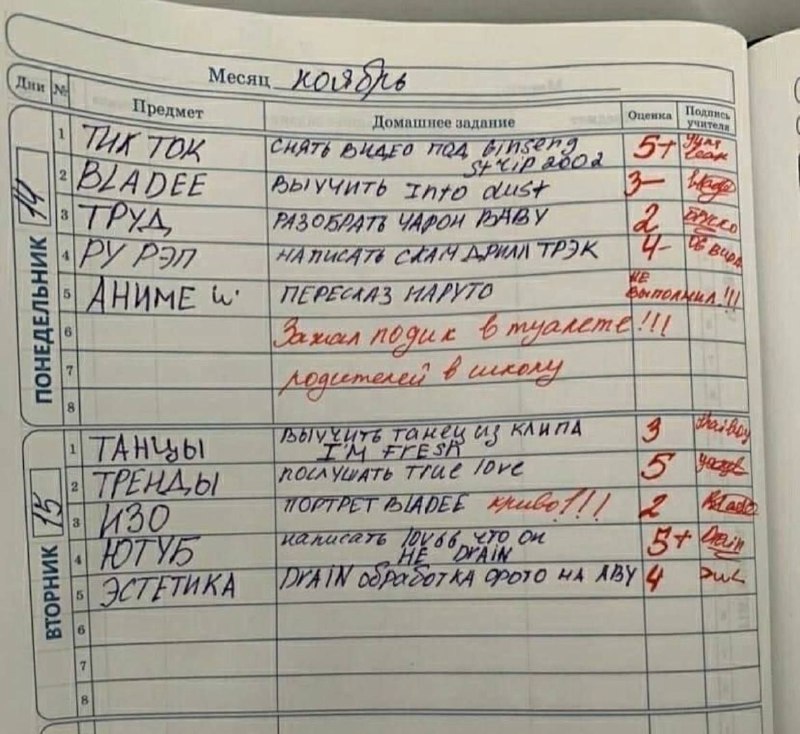 Месяц ноябрь
Дни № Предмет Домашнее задание Оценка Подпись учителя
ПОНЕДЕЛЬНИК 14
1 ТИК ТОК СНЯТЬ ВИДЕО ПОД Ginseng Strip 2002 5+
2 BLADEE ВЫУЧИТЬ Into dust 3-
3 ТРУД РАЗОБРАТЬ ЧАРОН BABY 2
4 РУ РЭП НАПИСАТЬ СКАМ ДРИЛЛ ТРЭК 4-
5 АНИМЕ ПЕРЕСКАЗ НАРУТО НЕ ВЫПОЛНИЛ!!!
6 Зажал подик в туалете!!!
7 родителей в школу
8
ВТОРНИК 15
1 ТАНЦЫ ВЫУЧИТЬ танец из КЛИПА I'M FRESH 3
2 ТРЕНДЫ ПОСЛУШАТЬ true love 5
3 ИЗО ПОРТРЕТ BLADEE криво!!! 2
4 ЮТУБ написать 10v66, что он НЕ DRAIN 5+ Drain
5 ЭСТЕТИКА DRAIN обработка фото на АВУ 4
6
7
8